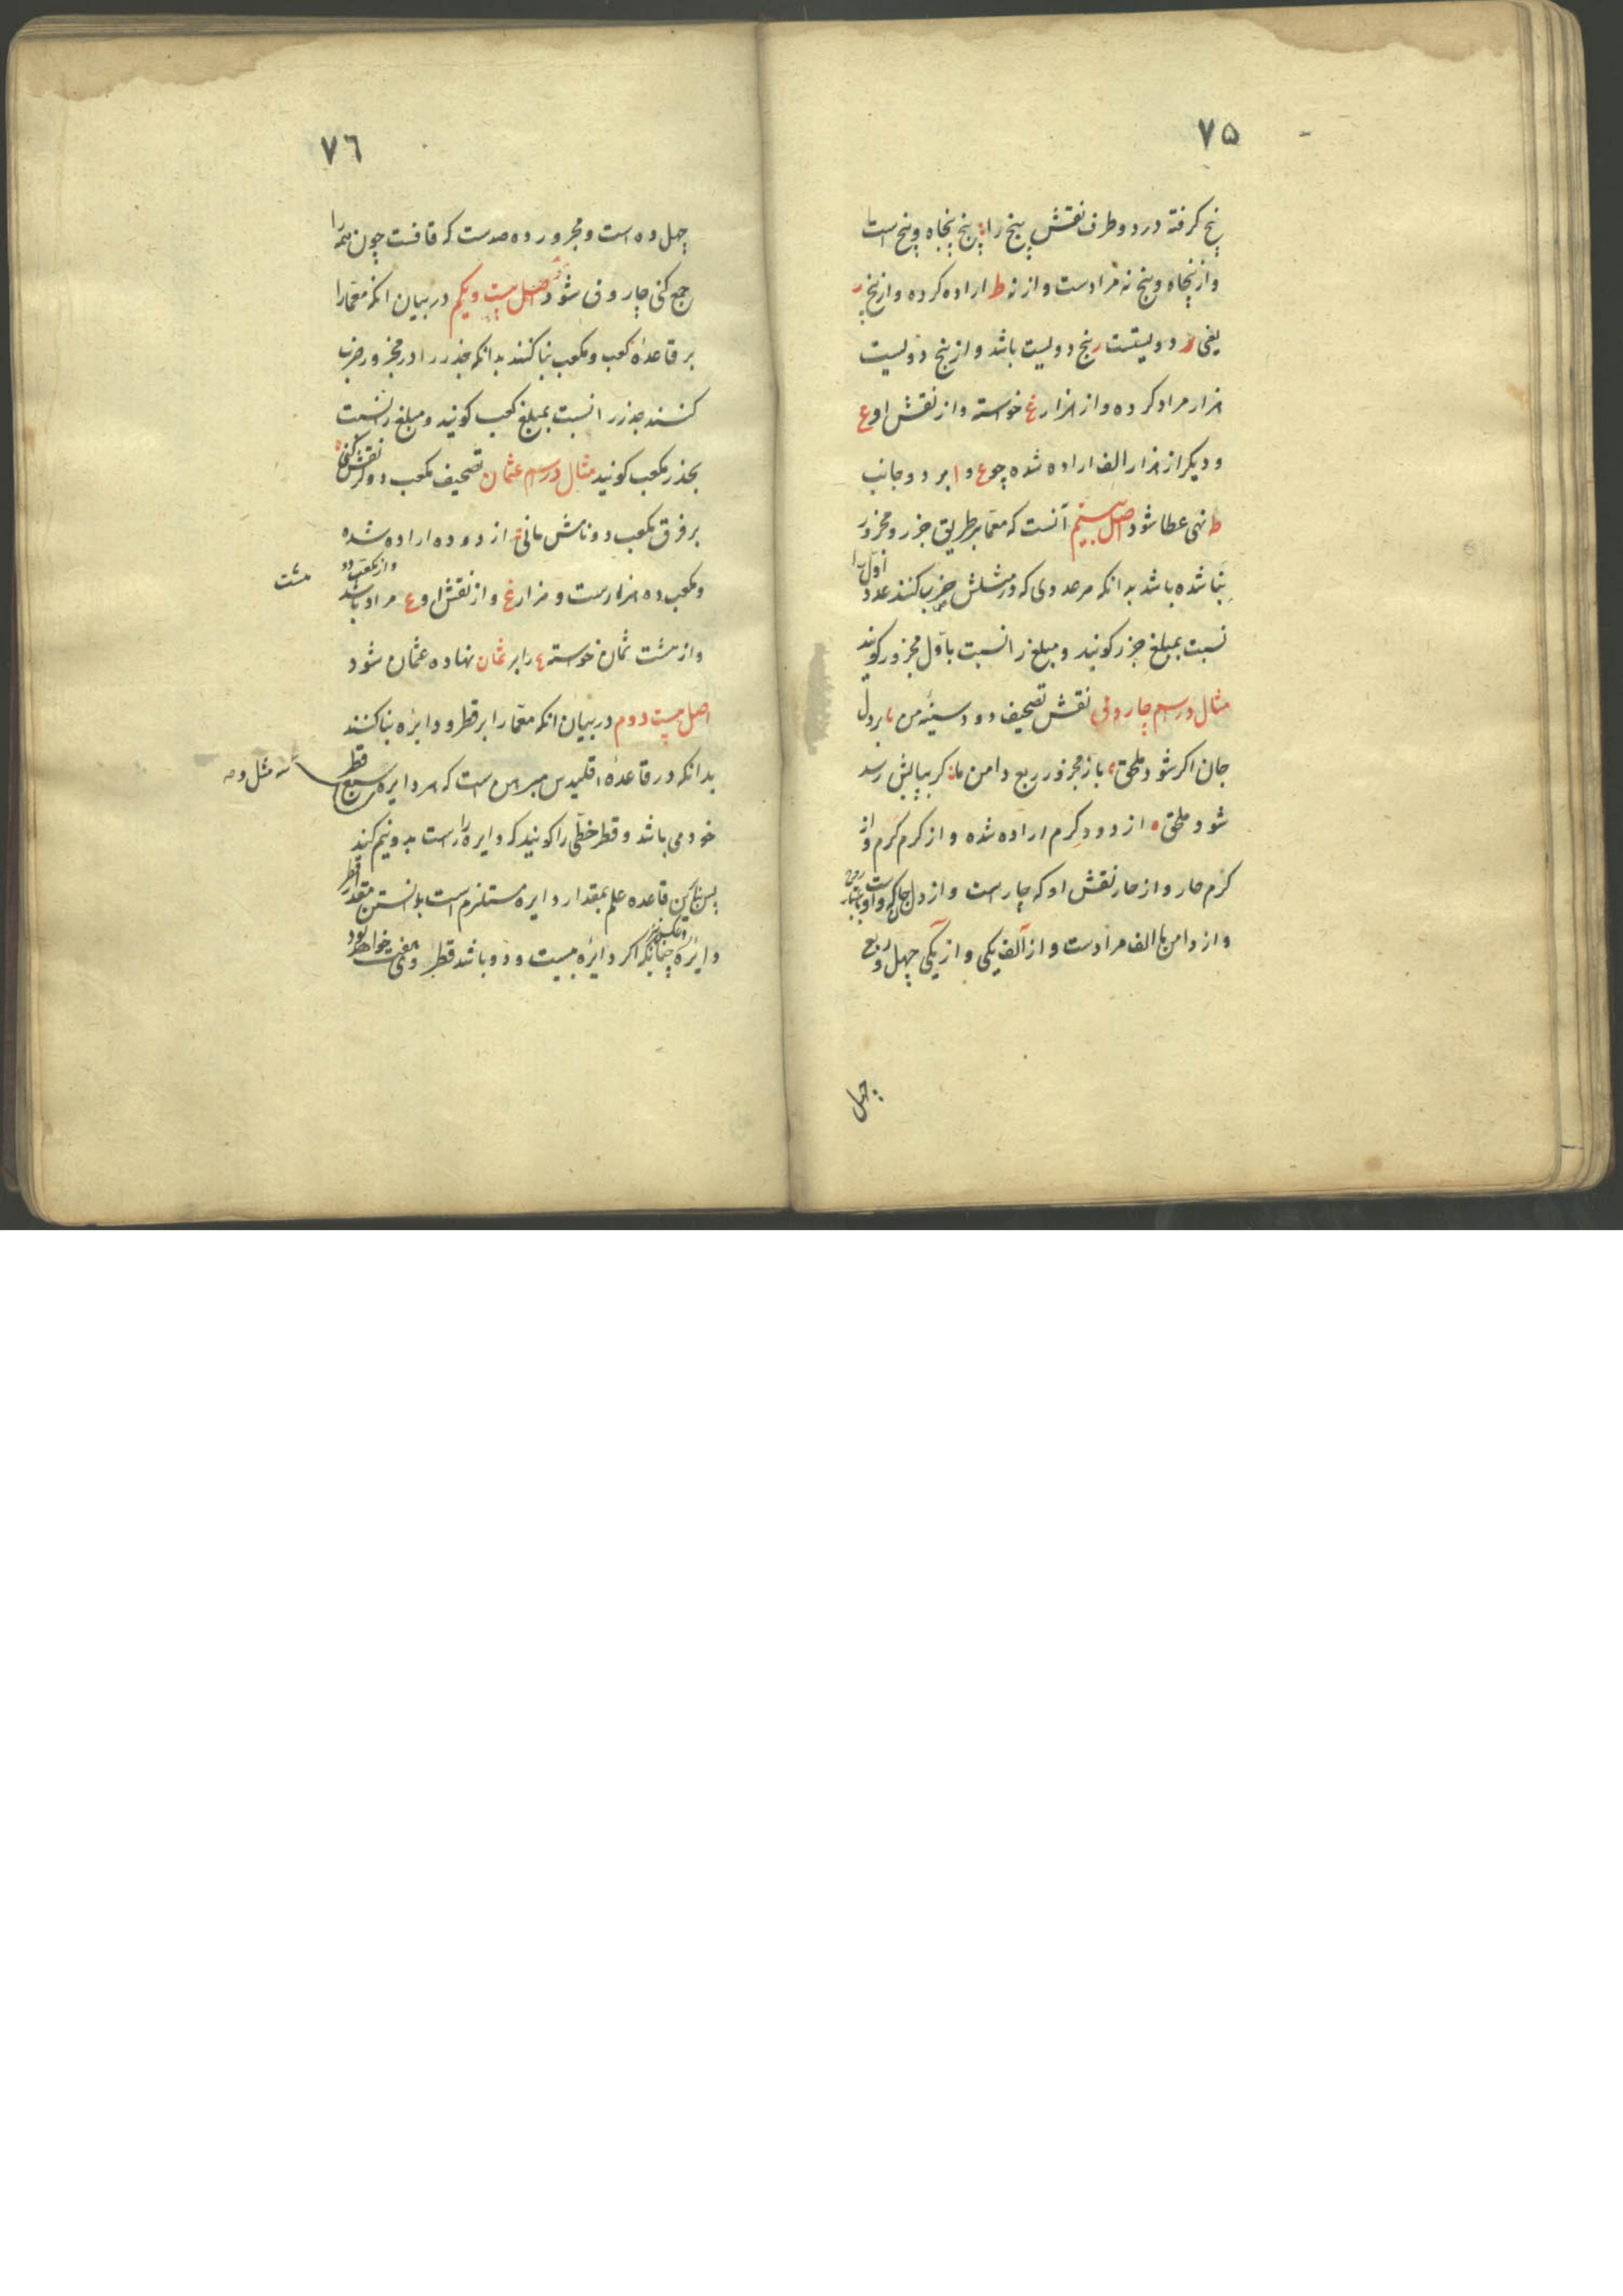 ۷۵
پنج گرفته در دو طرف نقش پنج را پنج پنجاه و پنج است
و از پنجاه و پنج نه مرادست و از نه ط اراده کرده و از پنج ر
یعنی ر دویستست ر پنج دویست باشد و از پنج دویست
هزار مراد کرده و از هزار غ خواسته و از نقش او ع
و دیکر از هزار الف اراده شده چو ع و ا بر دو جانب
ط نهی عطا شود اصل بیستم آنست که معما بر طریق جزر و مجزور
بنا شده باشد بدانکه هر عددی که در مثلش ضرب کنند عدد اول را
نسبت بمبلغ جزر کویند و مبلغ را نسبت باول مجزور کویند
مثال در اسم چاروقی نقش تصحیف دود سینه من بر دل
جان اکر شود ملحق باز مجزور ربع دامن ما کریبانش رسد
شود ملحق از دود کرم اراده شده و از کرم کرم و از
کرم حار و از حار نقش او که چارست و از دل جان که واوست
و از دامن ما الف مرادست و از الف یکی و از یکی چهل و ربع
چهل
۷٦
چهل ده است و مجزور ده صدست که قافست چون همه را
جمع کنی چاروق شود اصل بیست و یکم در بیان انکه معما را
بر قاعده کعب و مکعب بنا کنند بدانکه جذر را در مجزور ضرب
کنند جذر را نسبت بمبلغ کعب کویند و مبلغ را نسبت
بجذر مکعب کویند مثال در اسم عثمان تصحیف مکعب دو کر نقش کنی
بر فرق مکعب دو نامش مانی از دو ده اراده شده
و مکعب ده هزارست و هزار غ و از نقش او ع مراد باشد و از مکعب دو
هشت
و از هشت ثمان خواسته ع را بر ثمان نهاده عثمان شود
اصل بیست دوم در بیان انکه معما را بر قطر و دایره بنا کنند
بدانکه در قاعده اقلیدس مبرهن است که هر دایره سه مثل و سبع قطر
خود می باشد و قطر خطی را کویند که دایره را راست بدو نیم کند
پس بنابرین قاعده علم بمقدار دایره مستلزم است بدانستن مقدار قطر
و عکس نیز
دایره چنانکه اکر دایره بیست و دو باشد قطر وی هفت خواهد بود